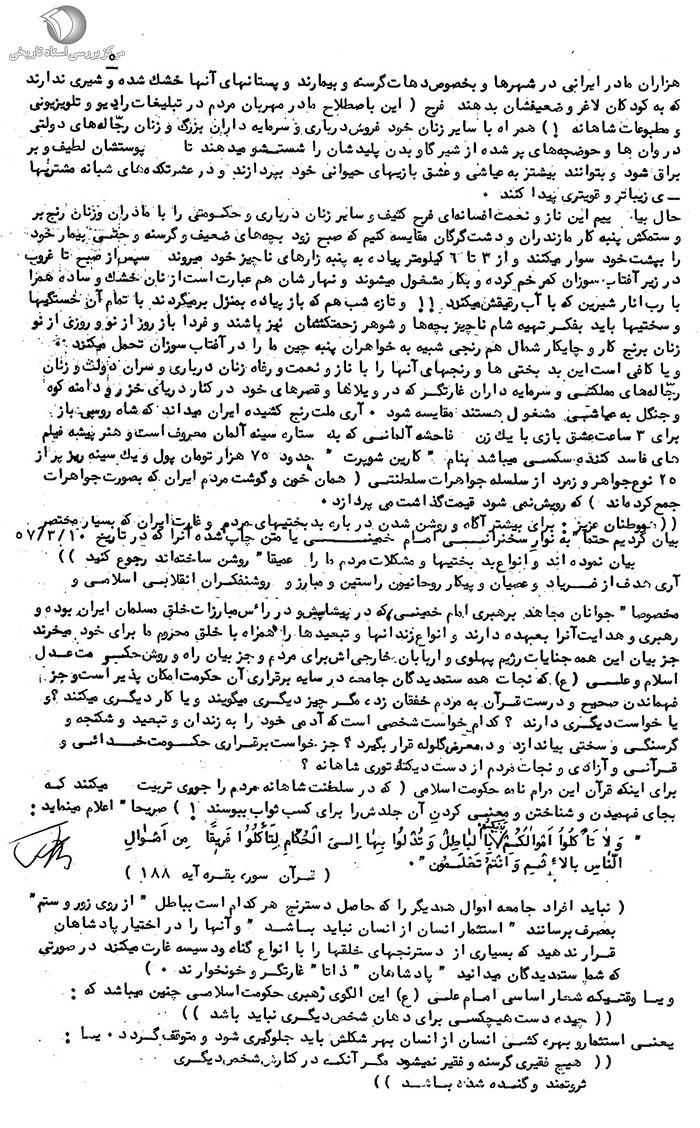 مرکز بررسی اسناد تاریخی
۵
هزاران مادر ایرانی در شهرها و بخصوص دهات گرسنه و بیمارند و پستانهای آنها خشك شده و شیری ندارند
که به کودکان لاغر و ضعیفشان بدهند فرح ( این باصطلاح مادر مهربان مردم در تبلیغات رادیو و تلویزیونی
و مطبوعات شاهانه ! ) همراه با سایر زنان خود فروش درباری و سرمایه داران بزرگ و زنان رجاله‌های دولتی
در وان ها و حوضچه‌های پر شده از شیر گاو بدن پلیدشان را شستشو میدهند تا پوستشان لطیف و بر
براق شود و بتوانند بیشتر به عیاشی و عشق بازیهای حیوانی خود بپردازند و در عشرتکده‌های شبانه مشتریها
ی زیباتر و قویتری پیدا کنند .
حال بیا ییم این ناز و نعمت افسانه‌ای فرح کثیف و سایر زنان درباری و حکومتی را با مادران و زنان رنج بر
و ستمکش پنبه کار مازندران و دشت گرگان مقایسه کنیم که صبح زود بچه‌های ضعیف و گرسنه و حتی بیمار خود
را بپشت خود سوار میکنند و از ۳ تا ۶ کیلومتر پیاده به پنبه زارهای ناچیز خود میروند سپس از صبح تا غروب
در زیر آفتاب سوزان کمر خم کرده و بکار مشغول میشوند و نهار شان هم عبارت است از نان خشك و ساده همرا
با رب انار شیرین که با آب رقیقش میکنند !! و تازه شب هم که باز پیاده بمنزل برمیگردند با تمام آن خستگیها
و سختیها باید بفکر تهیه شام ناچیز بچه‌ها و شوهر زحمتکششان نیز باشند و فردا باز روز از نو و روزی از نو
زنان برنج کار و چایکار شمال هم رنجی شبیه به خواهران پنبه چین ما را در آفتاب سوزان تحمل میکنند .
و یا کافی است این بد بختی ها و رنجهای آنها را با ناز و نعمت و رفاه زنان درباری و سران دولت و زنان
رجاله‌های مملکتی و سرمایه داران غارتگر که در ویلاها و قصرهای خود در کنار دریای خزر و دامنه کوه
و جنگل به عیاشی مشغول هستند مقایسه شود . آری ملت رنج کشیده ایران میداند که شاه روسپی باز
برای ۳ ساعت عشق بازی با یك زن فاحشه آلمانی که به ستاره سینه آلمان معروف است و هنر پیشه فیلم
های فاسد کننده سکسی میباشد بنام " کارین شوبرت " حدود ۷۵ هزار تومان پول و یك سینه ریز پر از
۲۵ نوع جواهر و زمرد از سلسله جواهرات سلطنتی ( همان خون و گوشت مردم ایران که بصورت جواهرات
جمع کرده‌اند ) که رویش نمی شود قیمت گذاشت می پردازد .
(( هموطنان عزیز : برای بیشتر آگاه و روشن شدن در باره بد بختیهای مردم و غارت ایران که بسیار مختصر
بیان کردیم حتما" به نوار سخنرانی امام خمینی یا متن چاپ شده آنرا که در تاریخ ۵۷/۳/۱۰
بیان نموده اند و انواع بد بختیها و مشکلات مردم ما را عمیقا" روشن ساخته‌اند رجوع کنید ))
آری هدف از فریاد و عصیان و پیکار روحانیون راستین و مبارز و روشنفکران انقلابی اسلامی و
مخصوصا" جوانان مجاهد برهبری امام خمینی که در پیشاپیش و در رأس مبارزات خلق مسلمان ایران بوده و
رهبری و هدایت آنرا بعهده دارند و انواع زندانها و تبعیدها را همراه با خلق محروم ما برای خود میخرند
جز بیان این همه جنایات رژیم پهلوی و اربابان خارجی‌اش برای مردم و جز بیان راه و روش حکومت عدل
اسلام و علی (ع) که نجات همه ستمدیدگان جامعه در سایه برقراری آن حکومت امکان پذیر است و جز
فهماندن صحیح و درست قرآن به مردم خفقان زده مگر چیز دیگری میگویند و یا کار دیگری میکنند ؟ و
یا خواست دیگری دارند ؟ کدام خواست شخصی است که آدمی خود را به زندان و تبعید و شکنجه و
گرسنگی و سختی بیاندازد و در معرض گلوله قرار بگیرد ؟ جز خواست برقراری حکومت خدائی و
قرآنی و آزادی و نجات مردم از دست دیکتاتوری شاهانه ؟
برای اینکه قرآن این مرام نامه حکومت اسلامی ( که در سلطنت شاهانه مردم را جوری تربیت میکنند که
بجای فهمیدن و شناختن و معنی کردن آن جلدش را برای کسب ثواب ببوسند ! ) صریحا" اعلام مینماید :
" وَ لا تَأکُلوا اَموالَکُم بَینَکُم بِالباطِلِ وَ تُدلُوا بِها اِلَی الحُکّامِ لِتَأکُلُوا فَریقًا مِن اَموالِ
النّاسِ بِالاِثمِ وَ اَنتُم تَعلَمُون " .
( قرآن سوره بقره آیه ۱۸۸ )
( نباید افراد جامعه اموال همدیگر را که حاصل دسترنج هر کدام است بباطل " از روی زور و ستم "
بمصرف برسانند " استثمار انسان از انسان نباید باشد " و آنها را در اختیار پادشاهان
قرار ندهید که بسیاری از دسترنجهای خلقها را با انواع گناه و دسیسه غارت میکنند در صورتی
که شما ستمدیدگان میدانید " پادشاهان " ذاتا" غارتگر و خونخوارند . )
و یا وقتیکه شعار اساسی امام علی (ع) این الگوی رهبری حکومت اسلامی چنین میباشد که :
(( چیده دست هیچکسی برای دهان شخص دیگری نباید باشد ))
یعنی استثمار و بهره کشی انسان از انسان بهر شکلش باید جلوگیری شود و متوقف گردد . یا :
(( هیچ فقیری گرسنه و فقیر نمیشود مگر آنکه در کنارش شخص دیگری
ثروتمند و گنده شده باشد ))